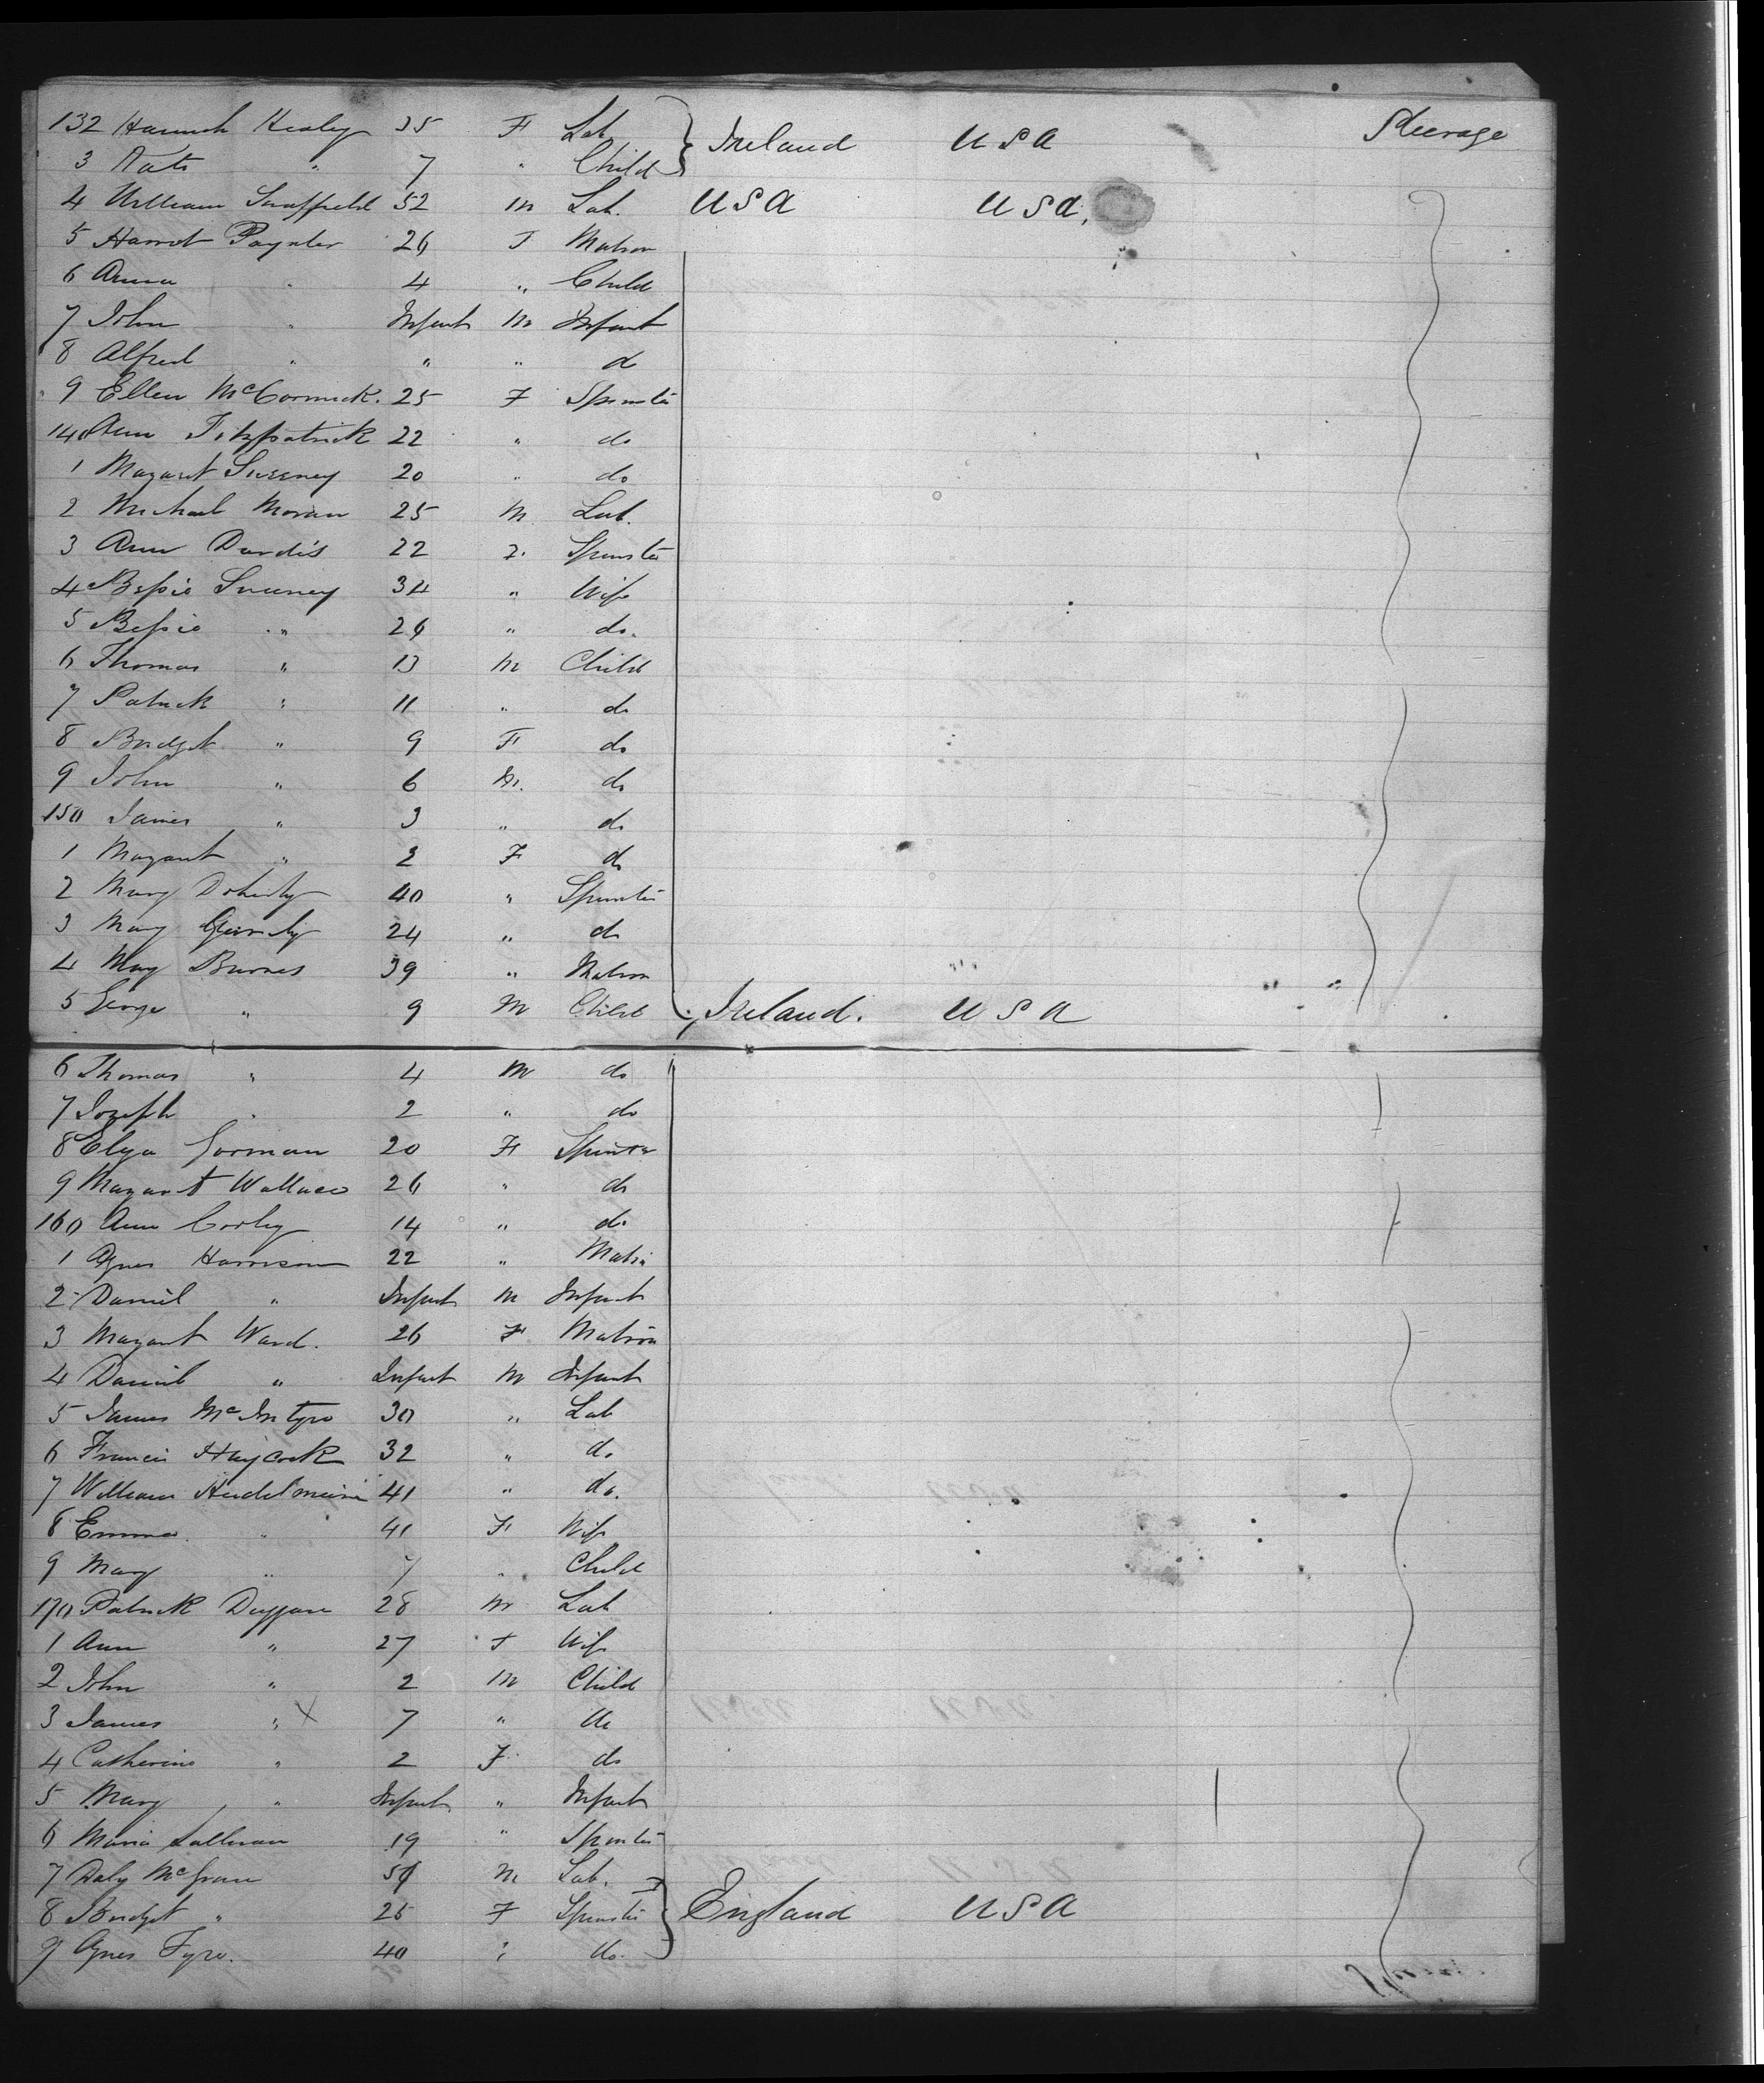 132 Hannah Healey 35 F Lab } Ireland USA Steerage
3 Kate " 7 " Child
4 William Swaffield 52 M Lab. USA USA.
5 Harriet Paynter 26 F Matron
6 Anna " 4 " Child
7 John " Infant M Infant
8 Alfred " " " do
9 Ellen McCormick. 25 F Spinster
140 Ann Fitzpatrick 22 " do
1 Margaret Sweeney 20 " do
2 Michael Moran 25 M Lab.
3 Ann Dardis 22 F. Spinster
4 Bessie Sweeney 34 " Wife
5 Bessie " 26 " do.
6 Thomas " 13 M Child
7 Patrick " 11 " do
8 Bridget " 9 F do
9 John " 6 M. do
150 James " 3 " do
1 Margaret " 2 F do
2 Mary Doherty 40 " Spinster
3 Mary 24 " do
4 Mary Burnes 39 " Matron
5 George " 9 M Child Ireland. USA
6 Thomas " 4 M do
7 Joseph " 2 " do
8 Eliza Gorman 20 F Spinster
9 Margaret Wallace 26 " do
160 Ann Corley 14 " do
1 Agnes Harrison 22 " Matron
2 Daniel " Infant M Infant
3 Margaret Ward. 26 F Matron
4 Daniel " Infant M Infant
5 James McIntyre 30 " Lab
6 Francis Haycock 32 " do
7 William 41 " do.
8 Emma " 41 F Wife
9 Mary " 7 " Child
170 Patrick Duggan 28 M Lab
1 Ann " 27 F Wife
2 John " 2 M Child
3 James " X 7 " do
4 Catherine " 2 F do
5 Mary " Infant " Infant
6 Maria Sullivan 19 " Spinster
7 Daly McGrane M Lab.
8 Bridget " 25 F Spinster } England USA
9 Agnes Tyre. 40 " do.